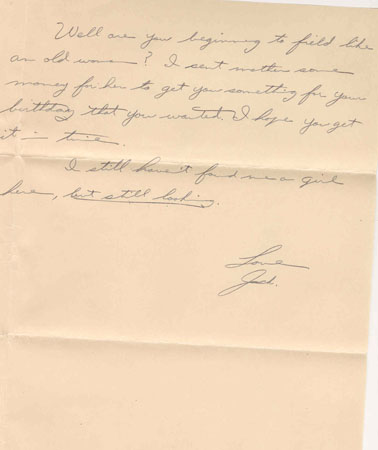 Well are you beginning to field like
an old woman? I sent mother some
money for her to get you something for your
birthday that you wanted. I hope you get
it in time.
I still haven't found me a girl
here, but still looking.
Love
Jack.